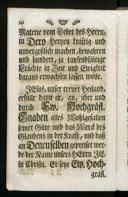 Materie vom Gebet des Herrn,
in Dero Hertzen kräftig und
unvergeßlich machen, bewahren
und hundert, ja tausendfältige
Früchte in Zeit und Ewigkeit
daraus erwachsen lassen wolle.
JEsus, unser treuer Heiland,
erfülle dann an, in, über und
durch Ew. Hochgräfl.
Gnaden alles Wohlgefallen
seiner Güte und das Werck des
Glaubens in der Kraft, und daß
an Denenselben gepreiset wer-
de der Name unsers HErrn JE-
su Christi. Er setze Ew. Hoch-
gräfl.